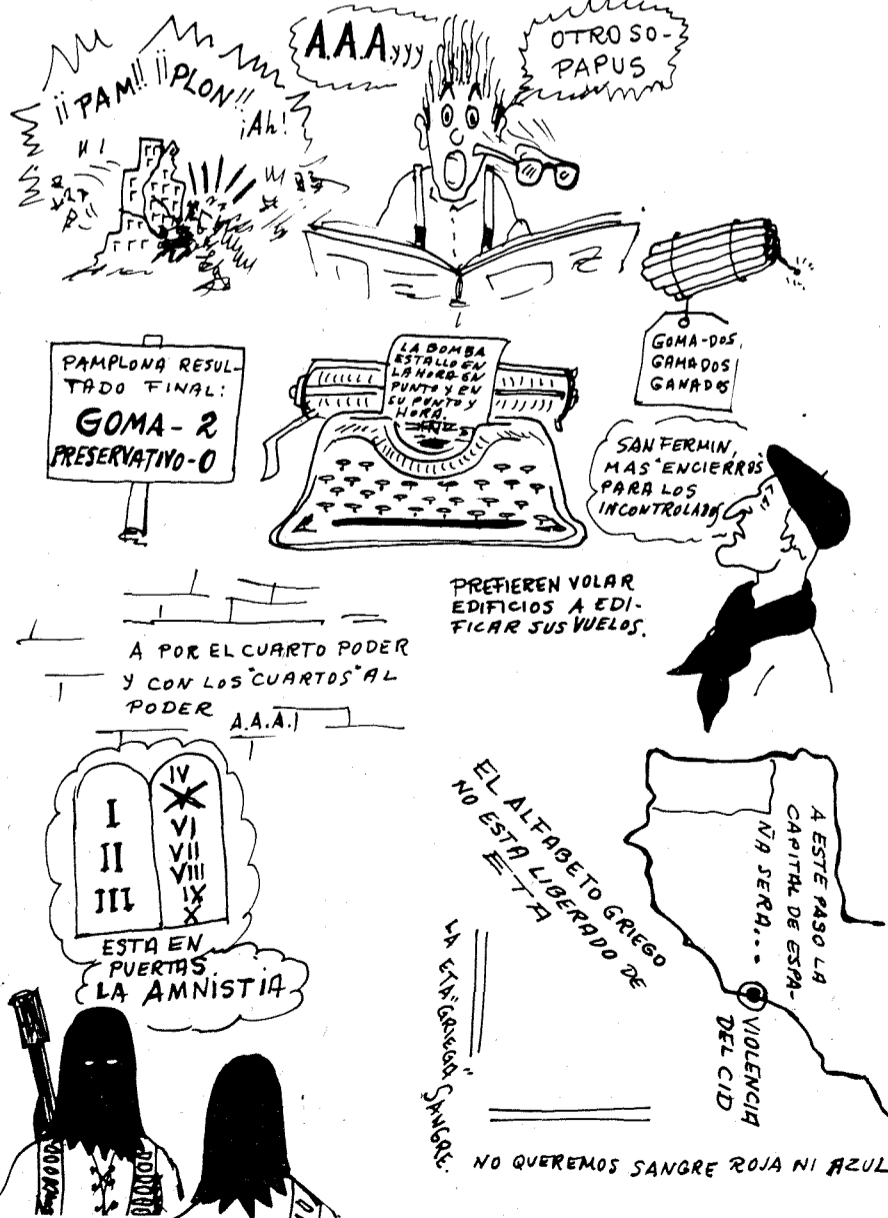 ¡¡PAM!! ¡¡PLON!!
¡Ah!
A.A.A.yyy
OTRO SO-
PAPUS
PAMPLONA RESUL-
TADO FINAL:
GOMA-2
PRESERVATIVO-0
LA BOMBA
ESTALLO EN
LA HORA EN
PUNTO Y EN
SU PUNTO Y
HORA.
GOMA-DOS,
GAMADOS
GANADOS
SAN FERMIN,
MAS "ENCIERROS"
PARA LOS
INCONTROLADOS
PREFIEREN VOLAR
EDIFICIOS A EDI-
FICAR SUS VUELOS.
A POR EL CUARTO PODER
Y CON LOS "CUARTOS" AL
PODER
A.A.A.
I
II
III
IV
V
VI
VII
VIII
IX
X
ESTA EN
PUERTAS.
LA AMNISTIA
EL ALFABETO GRIEGO
NO ESTA LIBERADO DE
ETA
LA ETA "GRIEGA" SANGRE.
A ESTE PASO LA
CAPITAL DE ESPA-
ÑA SERA...
VIOLENCIA
DEL CID
NO QUEREMOS SANGRE ROJA NI AZUL